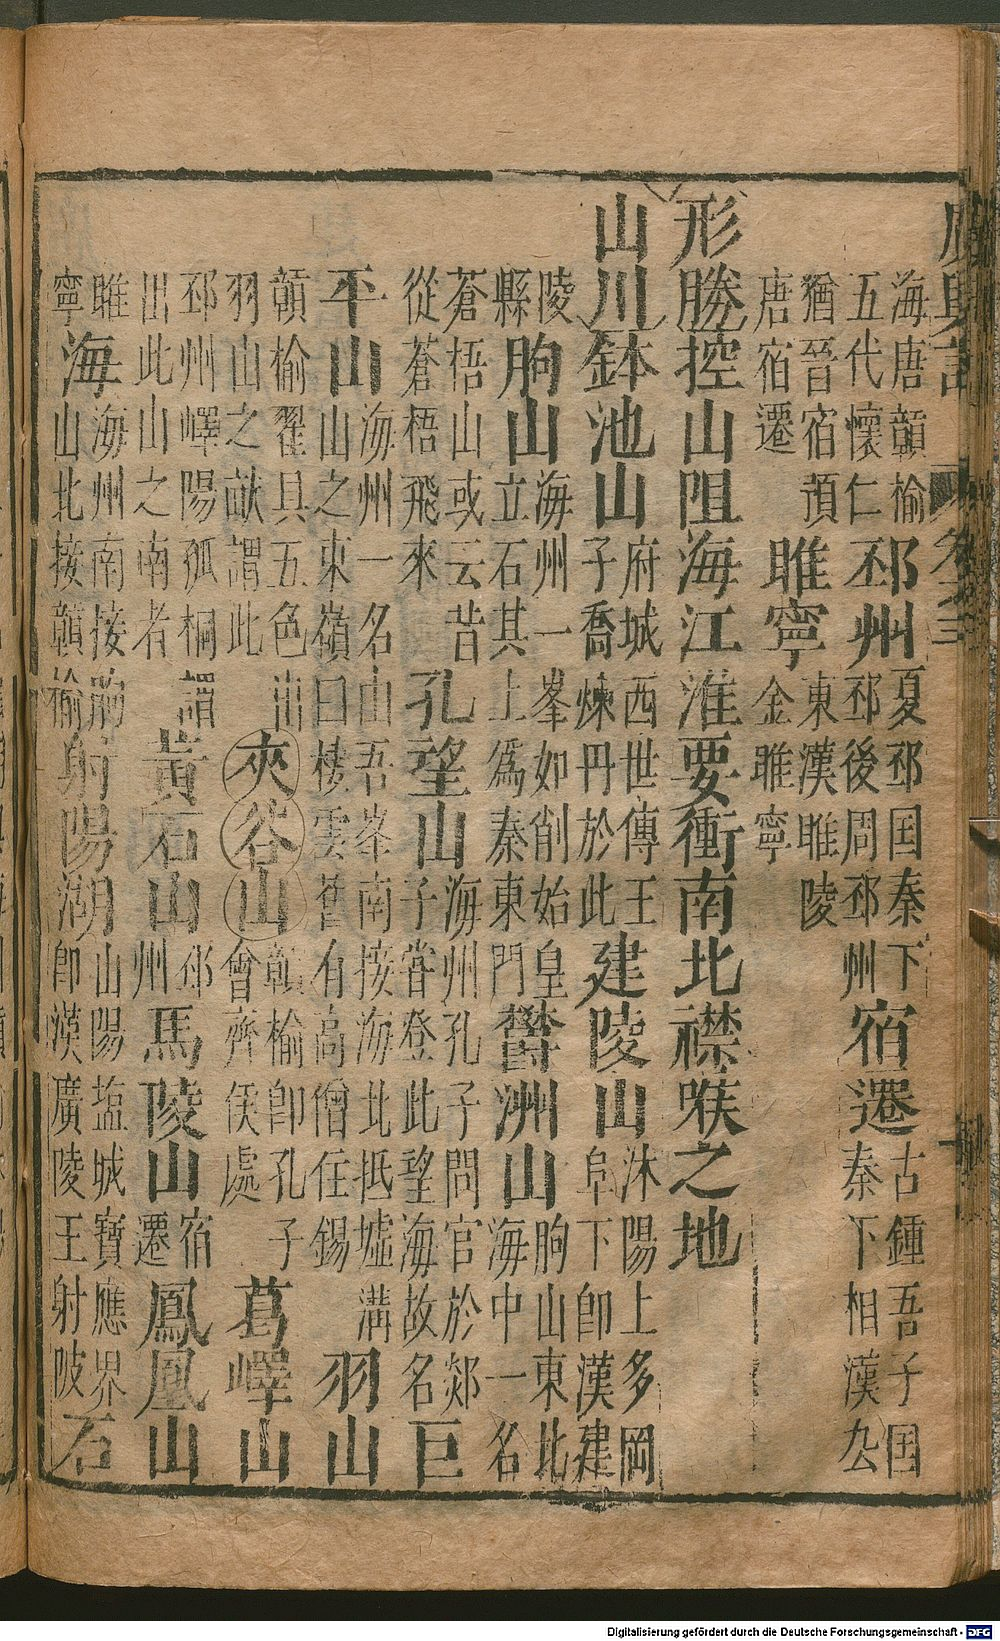 廣輿記 卷之三
海唐贛榆五代懷仁邳州夏邳国秦下邳後周邳州宿遷古鍾吾子国秦下相漢厹
猶晉宿預唐宿遷睢寧東漢睢陵金睢寧
形勝控山阻海江淮要衝南北襟喉之地
山川鉢池山府城西世傳王子喬煉丹於此建陵山沐陽上多岡阜下即漢建
陵縣朐山海州一峯如削始皇立石其上爲秦東門鬱洲山朐山東北海中一名
蒼梧山或云昔從蒼梧飛來孔望山海州孔子問官於郯子甞登此望海故名巨
平山海州一名由吾峯南接海北抵墟溝山之東嶺曰棲雲舊有高僧住錫羽山
贛榆翟具五色出羽山之畎謂此夾谷山贛榆即孔子會齊侯處葛嶧山
邳州嶧陽孤桐謂出此山之南者黃石山邳州馬陵山宿遷鳳凰山
睢寧海海州南接朐山北接贛榆射陽湖山陽塩城寶應界即漢廣陵王射陂石
Digitalisierung gefördert durch die Deutsche Forschungsgemeinschaft - DFG